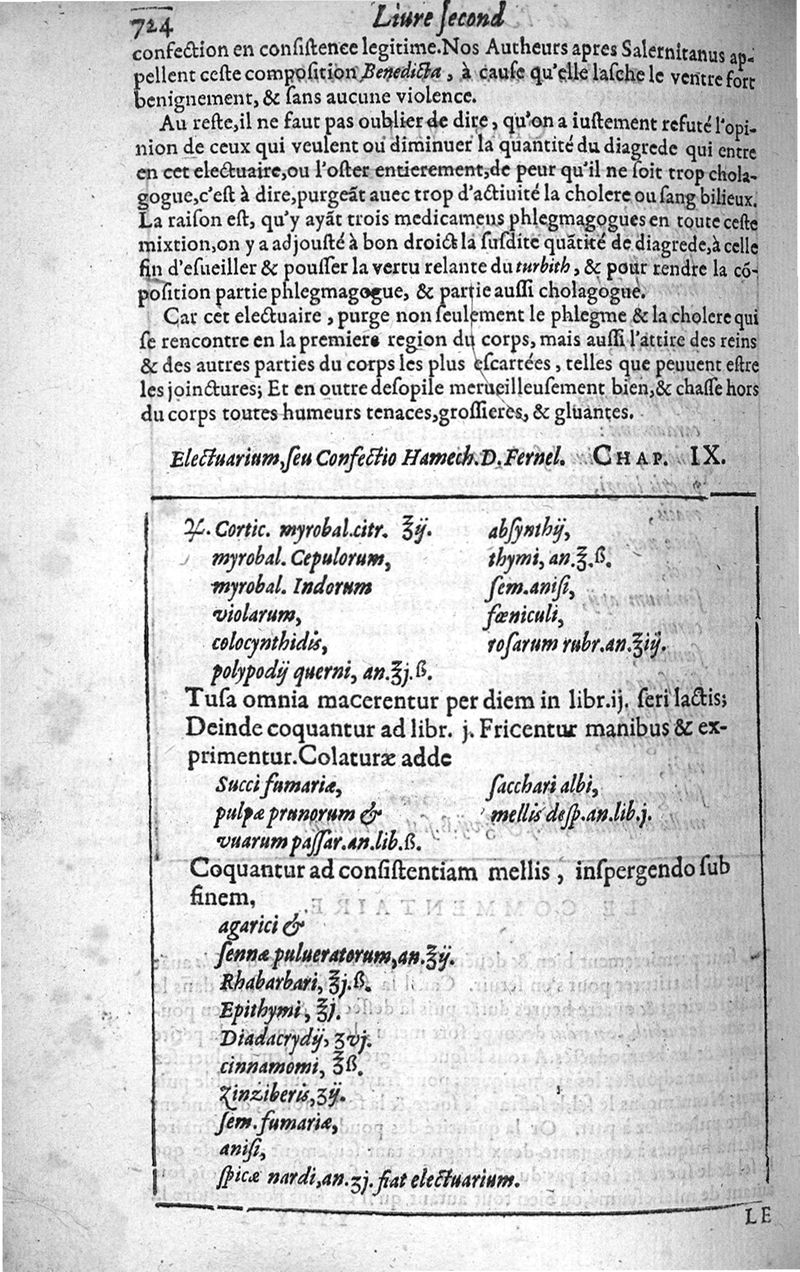 724 Liure ſecond
confection en conſiſtence legitime. Nos Autheurs apres Salernitanus ap-
pellent ceſte compoſition Benedicta, à cauſe qu'elle laſche le ventre fort
benignement, & ſans aucune violence.
Au reſte, il ne faut pas oublier de dire, qu'on a iuſtement refuté l'opi-
nion de ceux qui veulent ou diminuer la quantité du diagrede qui entre
en cet electuaire, ou l'oſter entierement, de peur qu'il ne ſoit trop chola-
gogue, c'eſt à dire, purgeãt auec trop d'actiuité la cholere ou ſang bilieux.
La raiſon eſt, qu'y ayãt trois medicamens phlegmagogues en toute ceſte
mixtion, on y a adjouſté à bon droict la ſuſdite quãtité de diagrede, à celle
fin d'eſueiller & pouſſer la vertu relante du turbith, & pour rendre la cõ-
poſition partie phlegmagogue, & partie auſſi cholagogue.
Car cet electuaire, purge non ſeulement le phlegme & la cholere qui
ſe rencontre en la premiere region du corps, mais auſſi l'attire des reins
& des autres parties du corps les plus eſcartées, telles que peuuent eſtre
les joinctures; Et en outre deſopile merueilleuſement bien, & chaſſe hors
du corps toutes humeurs tenaces, groſſieres, & gluantes.
Electuarium, ſeu Confectio Hamech. D. Fernel. CHAP. IX.
♃. Cortic. myrobal. citr. ℥ij.
myrobal. Cepulorum,
myrobal. Indorum
violarum,
colocynthidis,
polypodij querni, an. ℥j. ß.
abſynthij,
thymi, an. ℥. ß.
ſem. aniſi,
fœniculi,
roſarum rubr. an. ʒiij.
Tuſa omnia macerentur per diem in libr. ij. ſeri lactis;
Deinde coquantur ad libr. j. Fricentur manibus & ex-
primentur. Colaturæ adde
Succi fumariæ,
pulpæ prunorum &
vuarum paſſar. an. lib. ß.
ſacchari albi,
mellis deſp. an. lib. j.
Coquantur ad conſiſtentiam mellis, inſpergendo ſub
finem,
agarici &
ſennæ pulueratorum, an. ℥ij.
Rhabarbari, ℥j. ß.
Epithymi, ℥j.
Diadacrydij, ʒvj.
cinnamomi, ℥ß.
Zinziberis, ʒij.
ſem. fumariæ,
aniſi,
ſpicæ nardi, an. ʒj. fiat electuarium.
LE